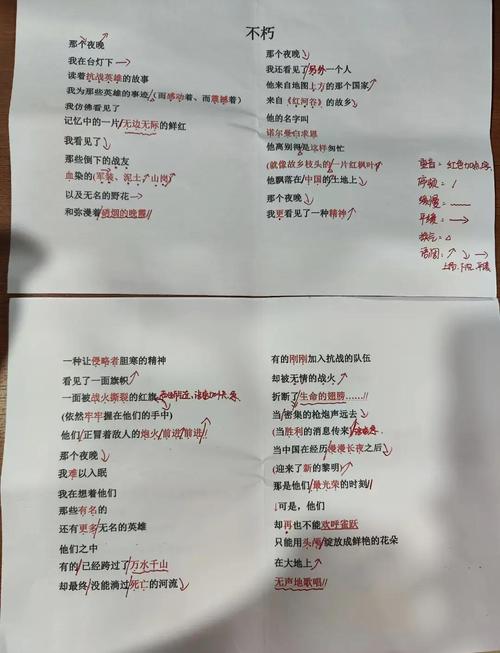 不朽
那个夜晚
我在台灯下
读着抗战英雄的故事
我为那些英雄的事迹(而感动着、而震撼着)
我仿佛看见了
记忆中的一片无边无际的鲜红
我看见了
那些倒下的战友
血染的(军装、泥土、山岗)
以及无名的野花
和弥漫着硝烟的晚霞
那个夜晚
我还看见了另外一个人
他来自地图上方的那个国家
来自《红河谷》的故乡
他的名字叫
诺尔曼白求恩
他离别得是这样匆忙
(就像故乡枝头的一片红枫叶)
他飘落在中国的土地上
那个夜晚
我更看见了一种精神
重音：红色加点字
停顿：/
缓慢：~
平缓：→
换气：△
语调：↗ ↘ →
上扬.下沉.平缓
一种让侵略者胆寒的精神
看见了一面旗帜
一面被战火撕裂的红旗
(依然牢牢握在他们的手中)
他们正冒着敌人的炮火前进前进
那个夜晚
我难以入眠
我在想着他们
那些有名的
还有更多无名的英雄
他们之中
有的已经跨过了万水千山
却最终没能淌过死亡的河流
有的刚刚加入抗战的队伍
却被无情的战火
折断了生命的翅膀……
当密集的枪炮声远去
(当胜利的消息传来)
当中国在经历漫漫长夜之后
(迎来了新的黎明)
那是他们最光荣的时刻
可是，他们
却再也不能欢呼雀跃
只能用头颅绽放成鲜艳的花朵
在大地上
无声地歌唱